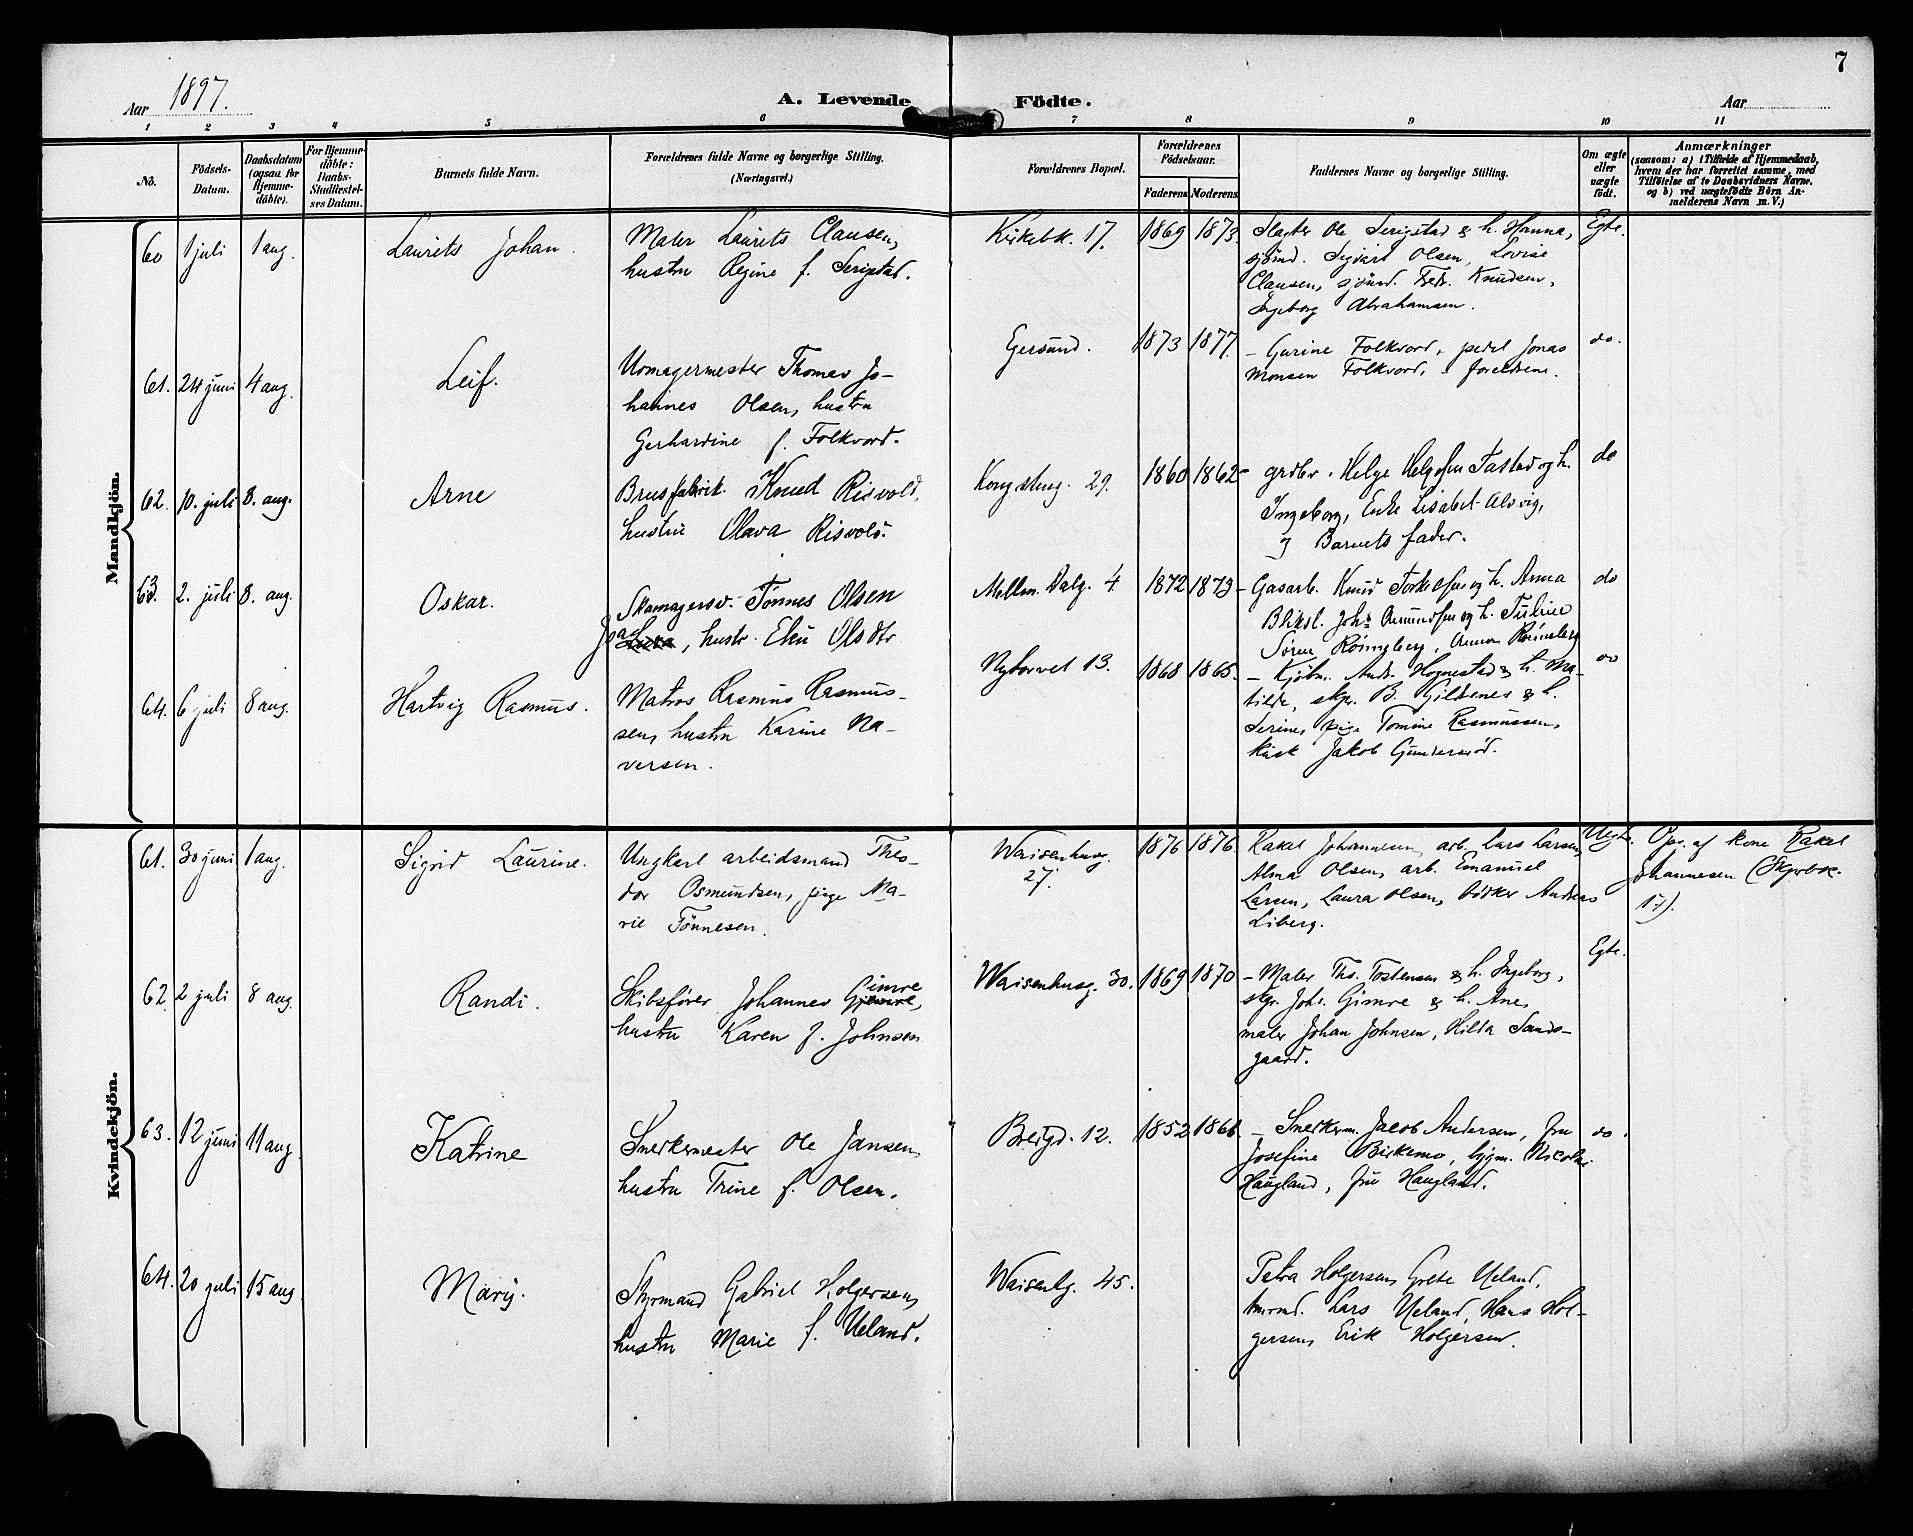 7
Aar 1897.
A. Levende Födte.
Aar
1 2 3 4 5 6 7 8 9 10 11
No.
Födsels-
Datum.
Daabsdatum
(ogsaa for
Hjemme-
döbte).
For Hjemme-
döbte:
Daabs-
Stadfæstel-
ses Datum.
Barnets fulde Navn.
Forældrenes fulde Navne og borgerlige Stilling.
(Næringsvei.)
Forældrenes Bopæl.
Forældrenes
Födselsaar.
Faderens Moderens
Faddernes Navne og borgerlige Stilling.
Om ægte
eller
uægte
födt.
Anmærkninger
(saasom: a) i Tilfælde af Hjemmedaab,
hvem der har forrettet samme, med
Tilföielse af to Daabsvidners Navne.
og b) ved uægtefödte Börn An-
melderens Navn m. V.)
Mandkjön.
60 1 juli 1 aug.
Laurits Johan.
Maler Laurits Clausen,
hustru Regine f. Serigstad.
Kirkebk. 17.
1869 1873.
Slagter Ole Serigstad & h. Hanna,
sjömd. Sigvart Olsen, Lovise
Clausen, sjömd. Fredr. Knudsen,
Ingeborg Abrahamsen.
Egte.
61. 24 juni 4 aug.
Leif.
Uomagermester Thomas Jo-
hannes Olsen, hustru
Gerhardine f. Folkvord.
Egersund.
1873 1877.
- Gurine Folkvord, pedel Jonas
Monsen Folkvord, foreldrene.
do.
62. 10. juli 8. aug.
Arne
Brusfabrik. Knud Risvold,
hustru Olava Risvold.
Kongsteng. 29.
1860 1862
grdbr. Helge Helgesen Tastad og h.
Ingeborg, Enke Lisabet Alsvig,
og Barnets fader.
do
63. 2. juli 8. aug.
Oskar.
Skomagersv. Tönnes Olsen
, hustr. Olsdtr
Mellm. Dalg. 4
1872 1873
- Gasarb. Knud Torkelsen og h. Anna
Bliksl. Johs Amundsen og h.
Sören Rönneberg, Anna Rönneberg
do
64. 6 juli 8 aug.
Hartvig Rasmus.
Matros Rasmus Rasmus-
sen, hustru Karine Na-
versen.
Nytorvet 13.
1868 1865.
- Kjöbm. Andr. Hognestad & h. Ma-
tilde, skpr. B. Gilbenes & h.
Serine, pige Tomine Rasmussen,
Jakob
do
Kvindekjön.
61. 30 juni 1 aug.
Sigrid Laurine.
Ungkerl arbeidsmand Theo-
dor Osmundsen, pige Ma-
rie Tönnesen.
Waisenhusg.
27.
1876 1876.
Rakel Johannesen, arb. Lars Larsen,
Alma Olsen, arb. Emanuel
Larsen, Laura Olsen, bödker Andreas
Liberg.
Uegte.
Opg. af kone Rakel
Johannesen (Skprbk.
17).
62. 2 juli 8 aug.
Randi.
Gimre
Skibsförer Johannes Gjemre,
hustru Karen f. Johnsen
Waisenhusg. 30.
1869 1870
- Maler Ths. Tostensen & h. Ingeborg,
skpr. Johs. Gimre & h. Ane,
maler Johan Johnsen, Hilda Sands-
gaard.
Egte.
63. 12 juni 11 aug.
Katrine
Snekermester Ole Jansen,
hustru Trine f. Olsen.
Breigd. 12.
1852 1866.
- Snekerm. Jacob Andersen, fru
Josefine Birkemo, bygm. Nicolai
Haugland, fru Haugland.
do.
64. 20 juli 15 aug.
Mary.
Styrmand Gabriel Holgersen,
hustru Marie f. Ueland.
Waisenhg. 45.
Petra Holgersen, Grete Ueland,
tmrmd. Lars Ueland, Hans Hol-
gersen, Erik Holgersen.